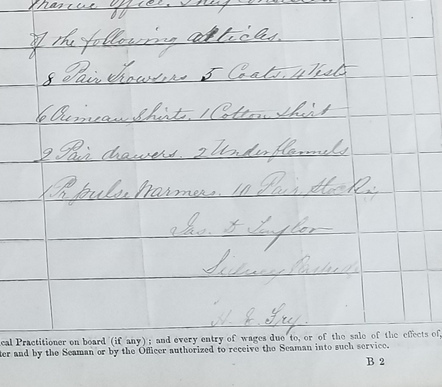 Marine Office. They consisted
of the following articles.
8 Pair Trowsers 5 Coats. 4 Vests
6 Crimean Shirts. 1 Cotton Shirt
2 Pair drawers. 2 Underflannels
1 Pr pulse Warmers. 10 Pair Stock
Jas. D Taylor
Sidney
H. E. Fry
cal Practitioner on board (if any); and every entry of wages due to, or of the sale of the effects of,
ter and by the Seaman or by the Officer authorized to receive the Seaman into such service.
B 2